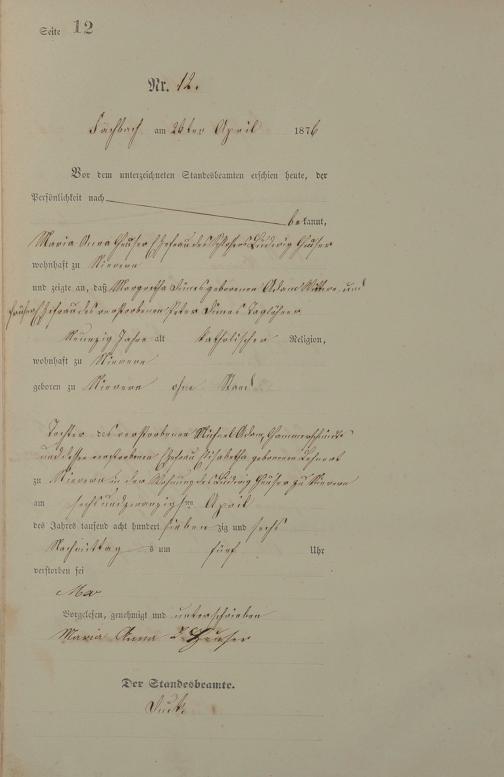 Seite 12
Nr. 12.
Fachbach am 26ten April 1876
Vor dem unterzeichneten Standesbeamten erschien heute, der
Persönlichkeit nach
bekannt,
Maria Anna Heuser Ehefrau des Ludwig Heuser
wohnhaft zu Nievern
und zeigte an, daß Margaretha geborenen Adam Wittwe und
Ehefrau des verstorbenen Peter Taglöhner
Neunzig Jahre alt katholischer Religion,
wohnhaft zu Nievern
geboren zu Nievern ohne Stand
Tochter des verstorbenen Michael Adam,
und dessen verstorbenen Ehefrau Elisabetha geborenen
zu Nievern in der Wohnung des Ludwig Heuser zu Nievern
am sechsundzwanzigsten April
des Jahres tausend acht hundert sieben zig und sechs
Nachmittag s um fünf Uhr
verstorben sei
Vorgelesen, genehmigt und unterschrieben
Maria Anna Heuser
Der Standesbeamte.